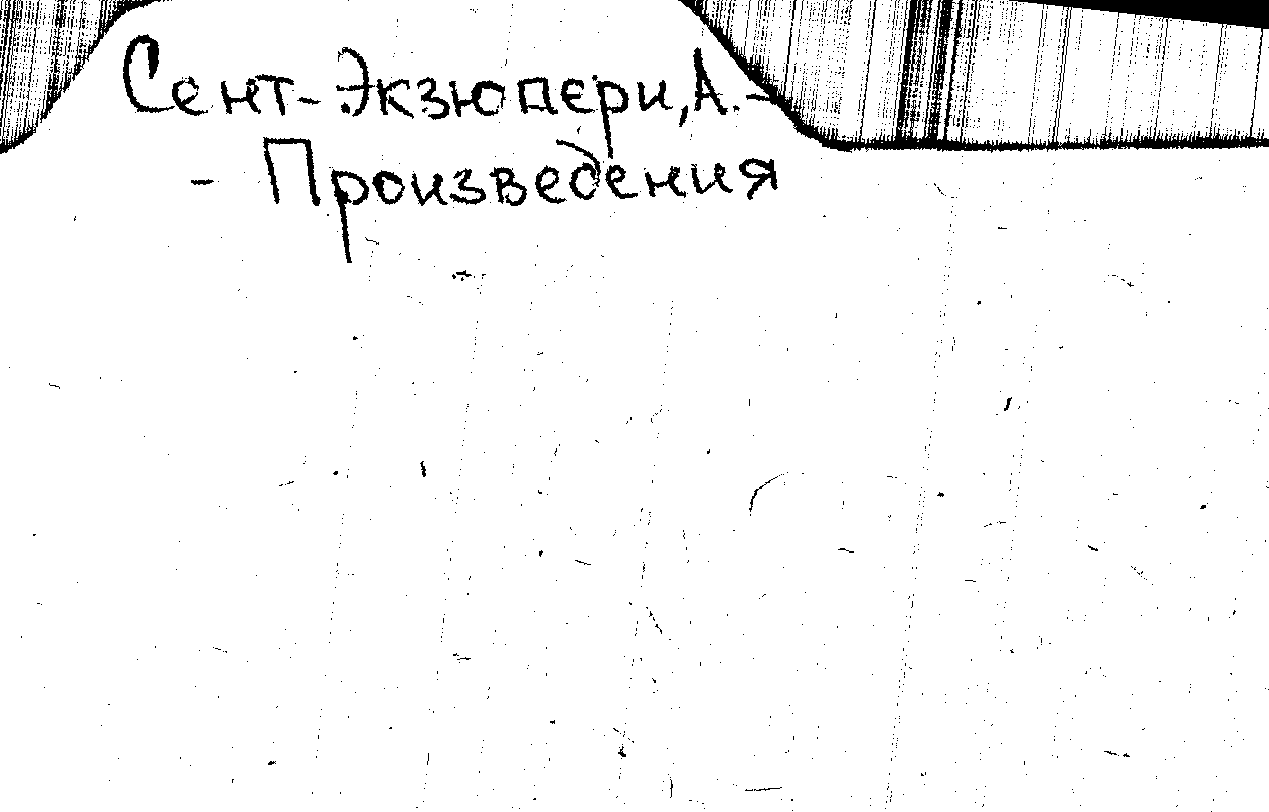 Сент-Экзюпери, А. -
- Произведения